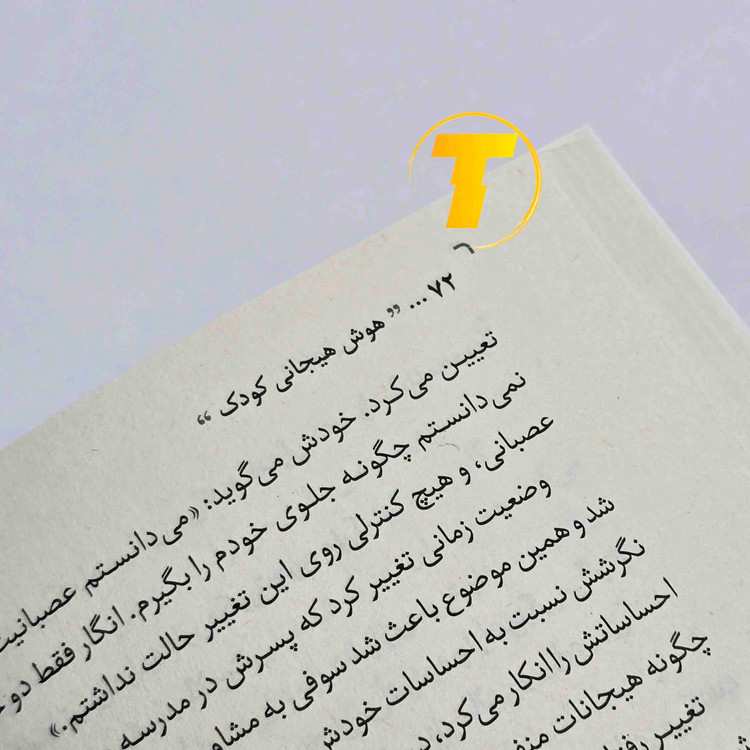 T
۷۲ ... ” هوش هیجانی کودک “
تعیین می‌کرد. خودش می‌گوید: «می‌دانستم عصبانیت
نمی‌دانستم چگونه جلوی خودم را بگیرم. انگار فقط دو
عصبانی، و هیچ کنترلی روی این تغییر حالت نداشتم.»
وضعیت زمانی تغییر کرد که پسرش در مدرسه
شد و همین موضوع باعث شد سوفی به
نگرشش نسبت به احساسات خودش
احساساتش را انکار می‌کرد،
چگونه هیجانات
تغییر